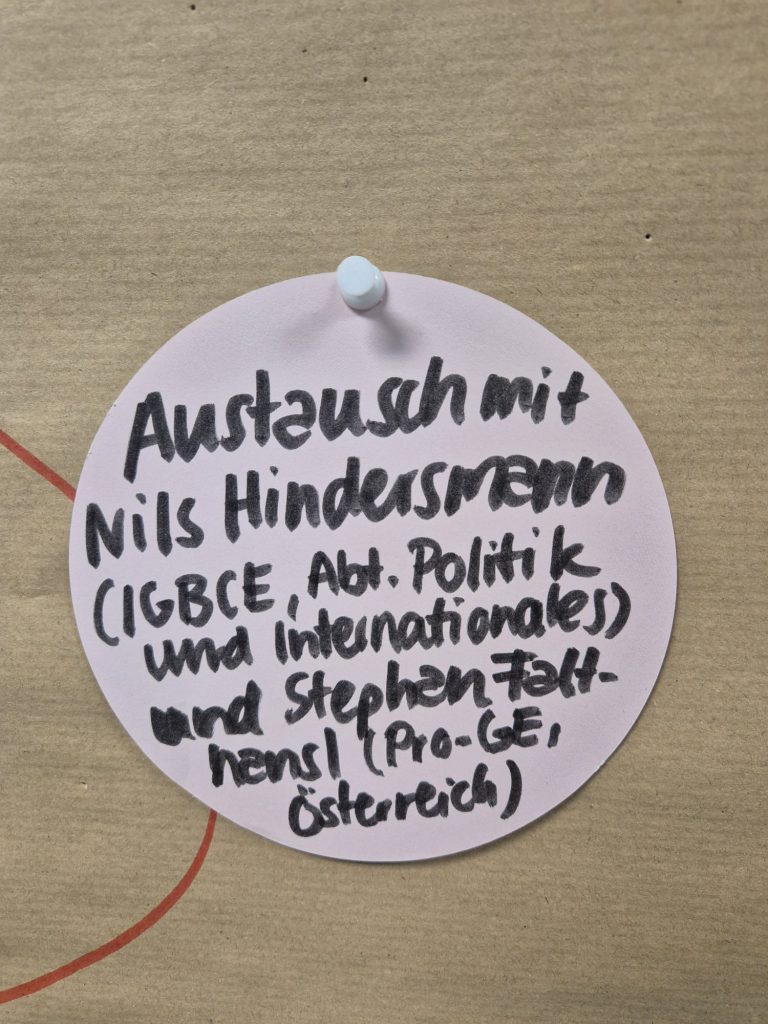 Austausch mit
Nils Hindersmann
(IGBCE, Abt. Politik
und Internationales)
und Stephan Falt-
hansl (Pro-GE,
Österreich)